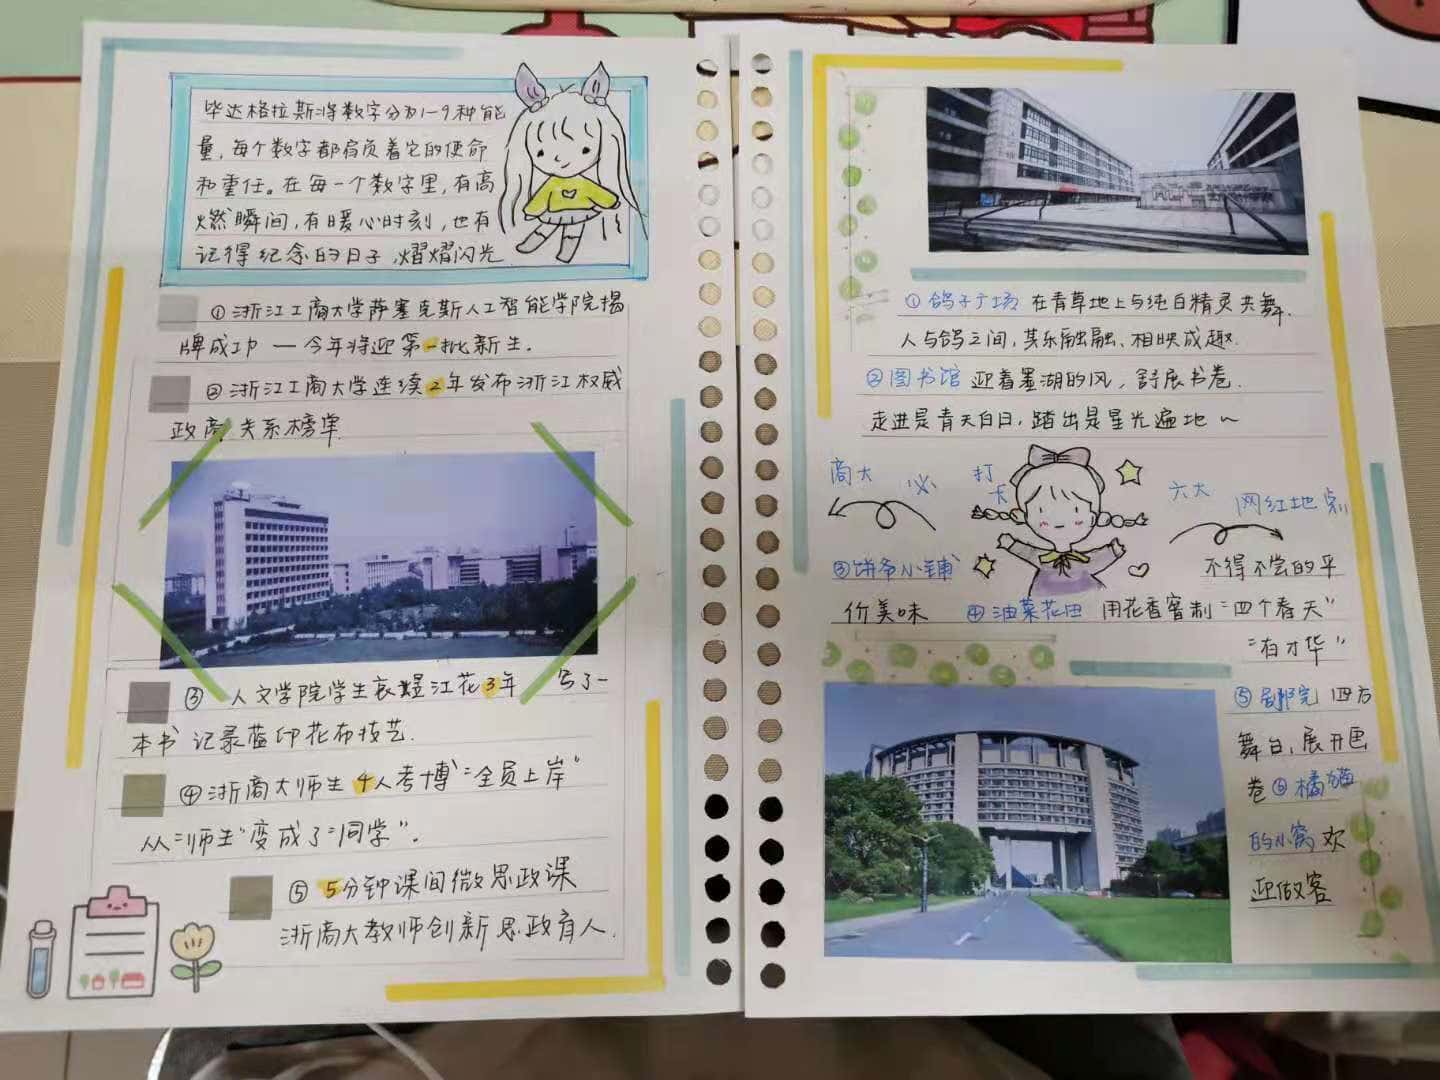 毕达格拉斯将数字分为1-9种能
量，每个数字都肩负着它的使命
和重任。在每一个数字里，有高
燃瞬间，有暖心时刻，也有
记得纪念的日子，熠熠闪光
①浙江工商大学萨塞克斯人工智能学院揭
牌成功 — 今年将迎第一批新生.
②浙江工商大学连续2年发布浙江权威
政商关系榜单
③ 人文学院学生袁煜江花3年 写了一
本书 记录蓝印花布技艺.
④浙商大师生4人考博“全员上岸”
从“师生”变成了“同学”.
⑤5分钟课间微思政课
浙商大教师创新思政育人.
①鸽子广场 在青草地上与纯白精灵共舞.
人与鸽之间,其乐融融、相映成趣.
②图书馆 迎着墨湖的风，舒展书卷.
走进是青天白日,踏出是星光遍地～
商大 必 打卡 六大 网红地点
③饼爷小铺 不得不尝的平
价美味 ④油菜花田 用花香窖制“四个春天”
“有才华”
⑤剧院 四方
舞台,展开画
卷⑥橘猫
的小窝 欢
迎做客